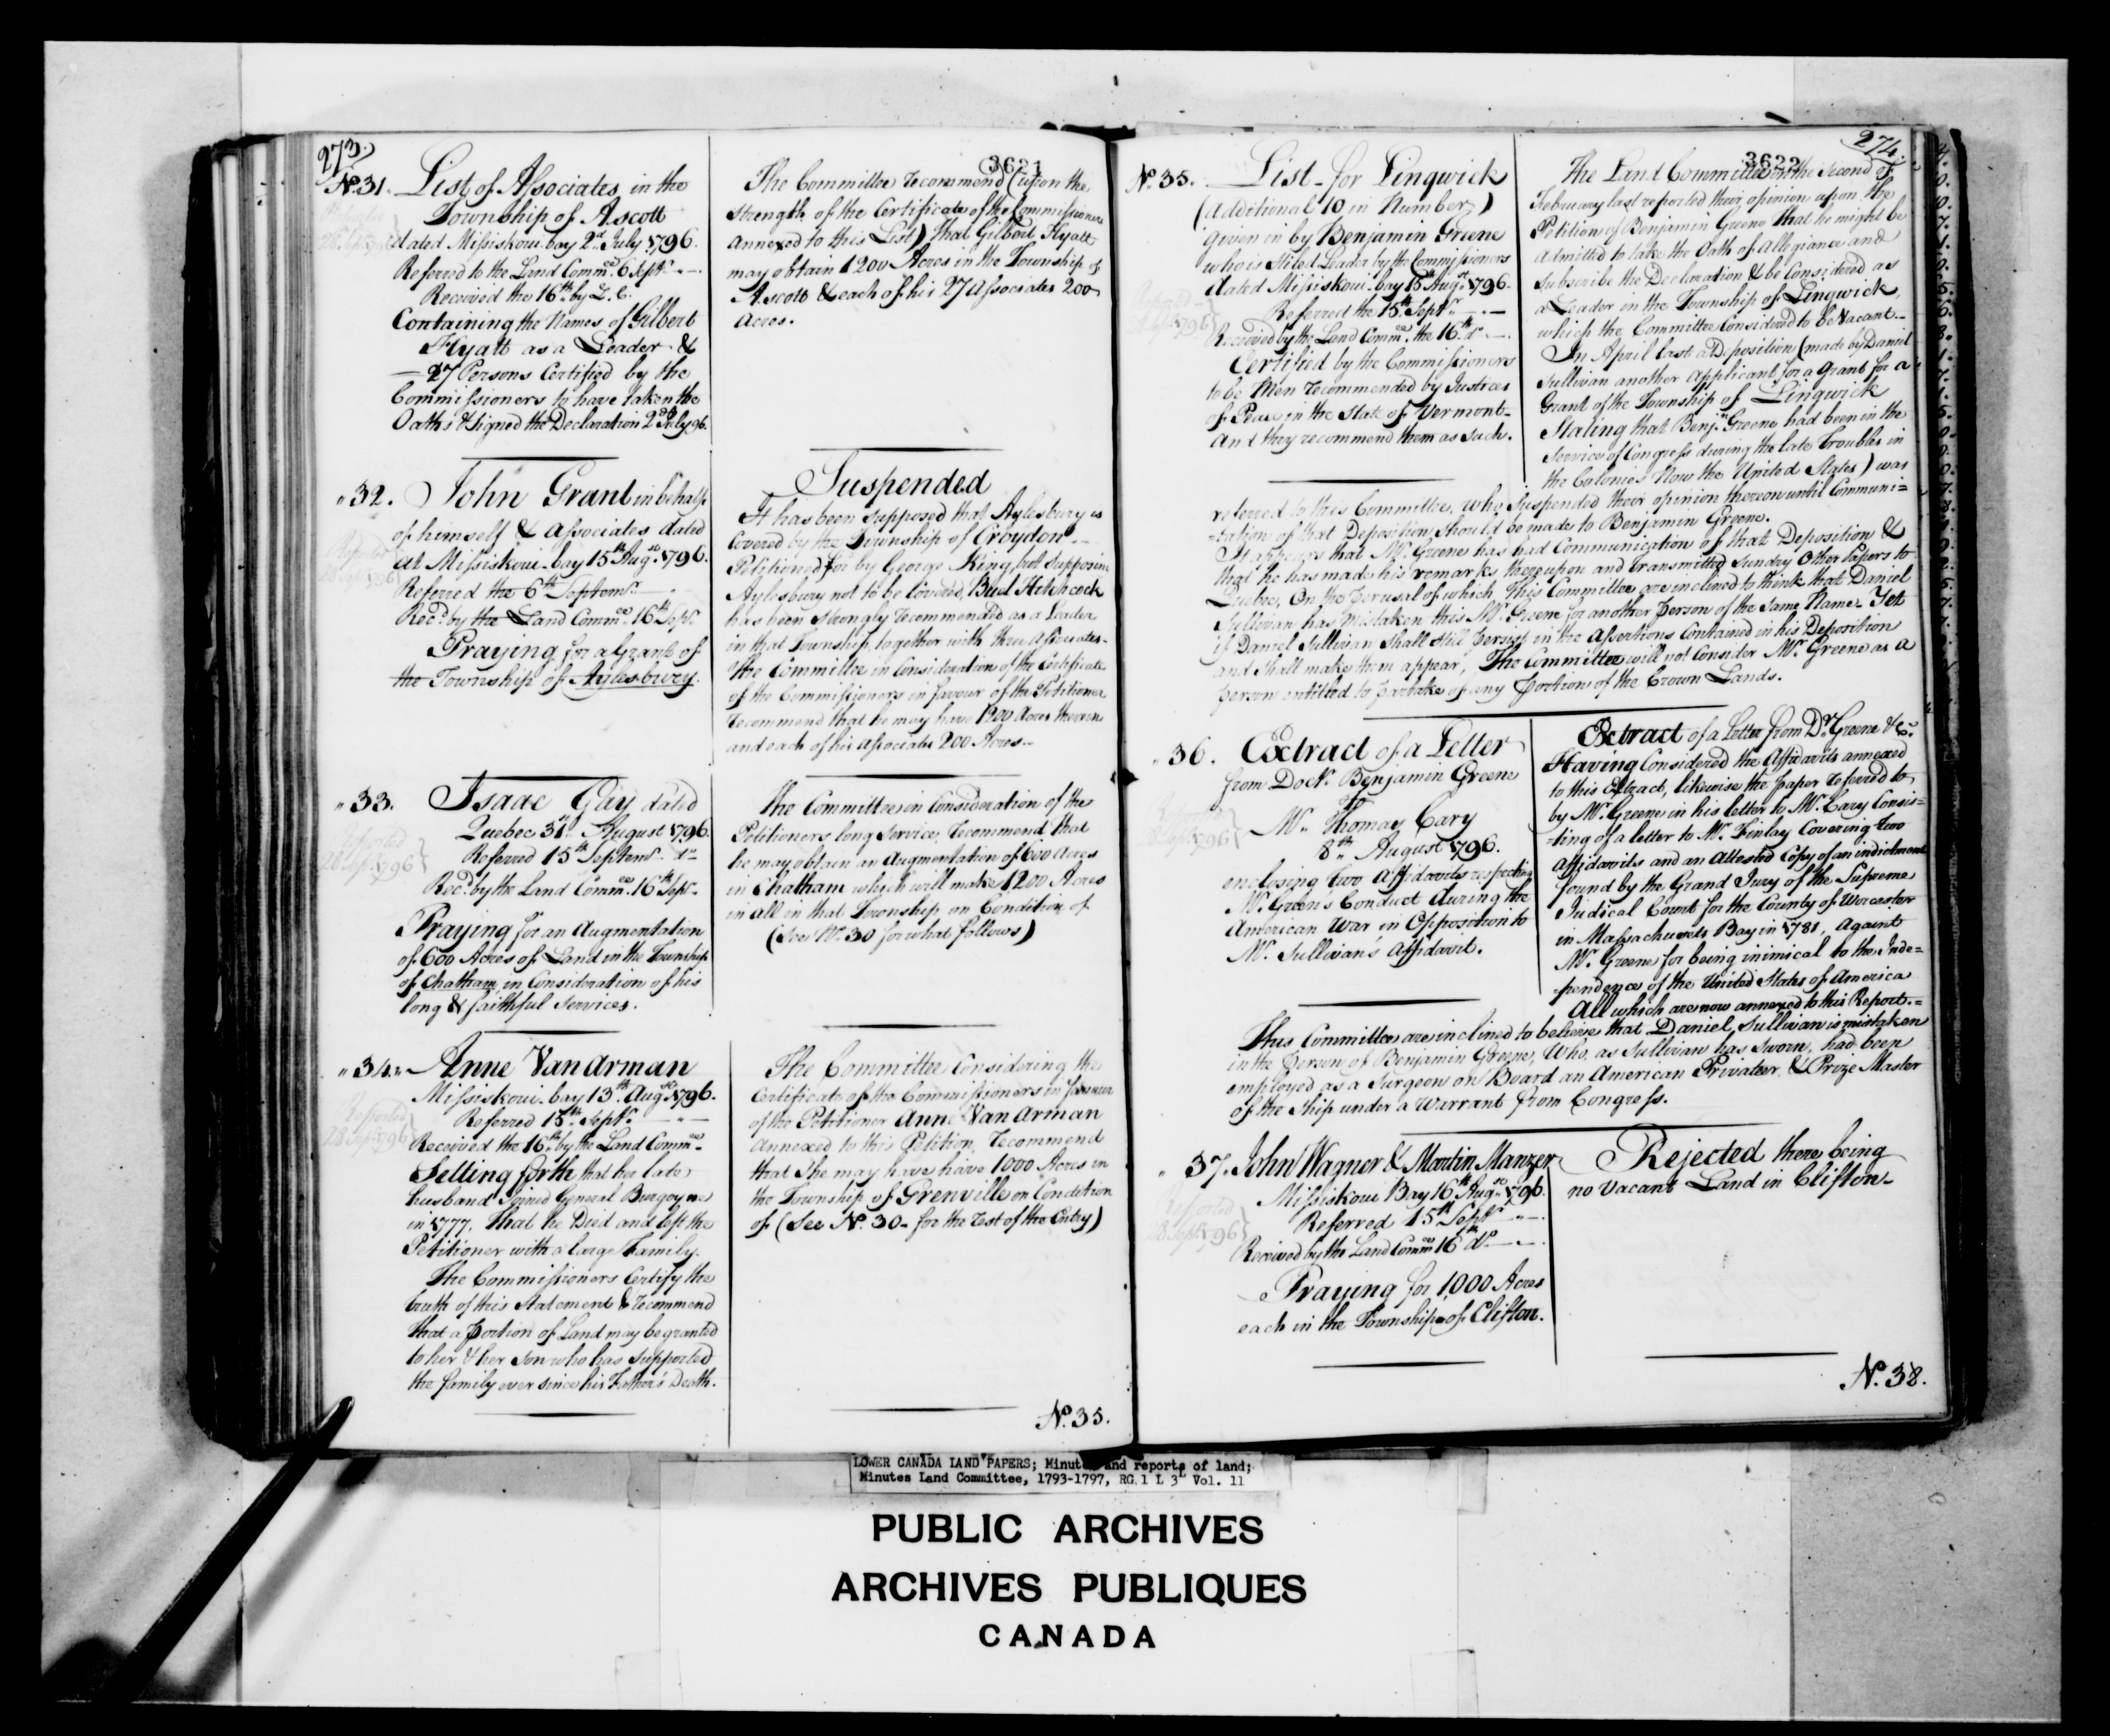 273.
3621
No. 31. List of Associates in the
Township of Ascott
dated Missiskoui bay 2d July 1796.
Referred to the Land Commee 6 Septr
Received the 16th by L. C.
Containing the Names of Gilbert
Hyatt as a Leader &
27 Persons Certified by the
Commissioners to have taken the
Oaths & Signed the Declaration 2d July 96.
The Committee recommend (upon the
strength of the Certificate of the Commissioners
annexed to this List) that Gilbert Hyatt
may obtain 1200 Acres in the Township of
Ascott & each of his 27 Associates 200
Acres.
" 32. John Grant in behalf
of himself & Associates dated
at Missiskoui bay 15th Augst 1796.
Referred the 6th Septemr
Recd by the Land Commee 16th Septr
Praying for a Grant of
the Township of Aylesbury.
Reported
28 Sepr 1796
Suspended
It has been supposed that Aylesbury is
Covered by the Township of Croydon
Petitioned for by George King, but supposing
Aylesbury not to be Covered, Buel Hitchcock
has been strongly recommended as a Leader
in that Township, together with three Associates
The Committee in Consideration of the Certificate
of the Commissioners in favour of the Petitioner
recommend that he may have 1200 Acres therein
and each of his Associates 200 Acres
" 33. Isaac Gay dated
Quebec 31st August 1796.
Referred 15th Septemr do
Recd by the Land Commee 16th Septr
Praying for an Augmentation
of 600 Acres of Land in the Township
of Chatham, in Consideration of his
long & faithful Services.
Reported
28 Sepr 1796
The Committee in Consideration of the
Petitioners long Service, recommend that
he may obtain an Augmentation of 600 Acres
in Chatham which will make 1200 Acres
in all in that Township on Condition of
(See No. 30 for what follows)
" 34. Anne Van Arman
Missiskoui bay 13th Augst 1796.
Referred 15th Septr
Received the 16th by the Land Commee
Setting forth, that her late
husband joined General Burgoyne
in 1777, That he Died and left the
Petitioner with a large Family.
The Commissioners Certify the
truth of this Statement & recommend
that a portion of Land may be granted
to her & her Son who has supported
the family ever since his Father's Death.
Reported
28 Sepr 1796
The Committee Considering the
Certificate of the Commissioners in favour
of the Petitioner Anne Van Arman
annexed to this Petition, recommend
that she may have have 1000 Acres in
the Township of Grenville on Condition
of (See No. 30 for the rest of the Entry)
No. 35.
274.
3622
No. 35. List for Lingwick
(Additional 10 in Number)
given in by Benjamin Greene
who is Stiled Leader by the Commissioners
dated Missiskoui bay 15th Augst 1796.
Referred the 15th Septr
Received by the Land Commee the 16th do
Certified by the Commissioners
to be Men recommended by Justices
of Peace in the State of Vermont
and they recommend them as such.
The Land Committee on the second of
February last reported their opinion upon the
Petition of Benjamin Greene that he might be
admitted to take the Oath of Allegiance and
Subscribe the Declaration & be Considered as
a Leader in the Township of Lingwick,
which the Committee Considered to be Vacant.
In April last a Deposition (made by Daniel
Sullivan another Applicant for a Grant for a
Grant of the Township of Lingwick
Stating that Benjn Greene had been in the
Service of Congress during the late Troubles in
the Colonies Now the United States) was
referred to this Committee, who Suspended their opinion thereon until Communi=
=cation of that Deposition, should be made to Benjamin Greene.
It appears that Mr. Greene has had Communication of that Deposition &
that he has made his remarks thereupon and transmitted Sundry Other Papers to
Quebec, On the perusal of which, This Committee are inclined to think that Daniel
Sullivan has mistaken this Mr. Greene for another person of the same Name. Yet
if Daniel Sullivan shall still persist in the Assertions Contained in his Deposition
and shall make them appear, The Committee will not Consider Mr. Greene as a
person entitled to partake of any Portion of the Crown Lands.
" 36. Extract of a Letter
from Doctr Benjamin Greene
Mr. Thomas Cary
8th August 1796.
enclosing two Affidavits respecting
Mr. Green's Conduct during the
American War in Opposition to
Mr. Sullivan's Affidavit.
Extract of a Letter from Dr Greene &ca
Having Considered the Affidavits annexed
to this Extract, likewise the paper referred to
by Mr. Greene in his letter to Mr. Cary Consis=
=ting of a letter to Mr. Finlay Covering two
Affidavits and an attested Copy of an indictment
found by the Grand Jury of the Supreme
Judical Court for the County of Worcester
in Massachusets Bay in 1781, Against
Mr. Greene for being inimical to the Inde=
=pendence of the United States of America
All which are now annexed to this Report.=
This Committee are inclined to believe that Daniel Sullivan is mistaken
in the Person of Benjamin Greene, Who, as Sullivan has Sworn, had been
employed as a Surgeon on Board an American Privateer & Prize Master
of the Ship under a Warrant from Congress.
" 37. John Wagner & Martin Manzer
Missiskoui Bay 16th Augst 1796.
Referred 15th Septr
Received by the Land Commee 16 do
Praying for 1000 Acres
each in the Township of Clifton.
Reported
28 Sepr 1796
Rejected there being
no Vacant Land in Clifton
No. 38.
LOWER CANADA LAND PAPERS; Minutes and reports of land;
Minutes Land Committee, 1793-1797, RG 1 L 3L Vol. 11
PUBLIC ARCHIVES
ARCHIVES PUBLIQUES
CANADA